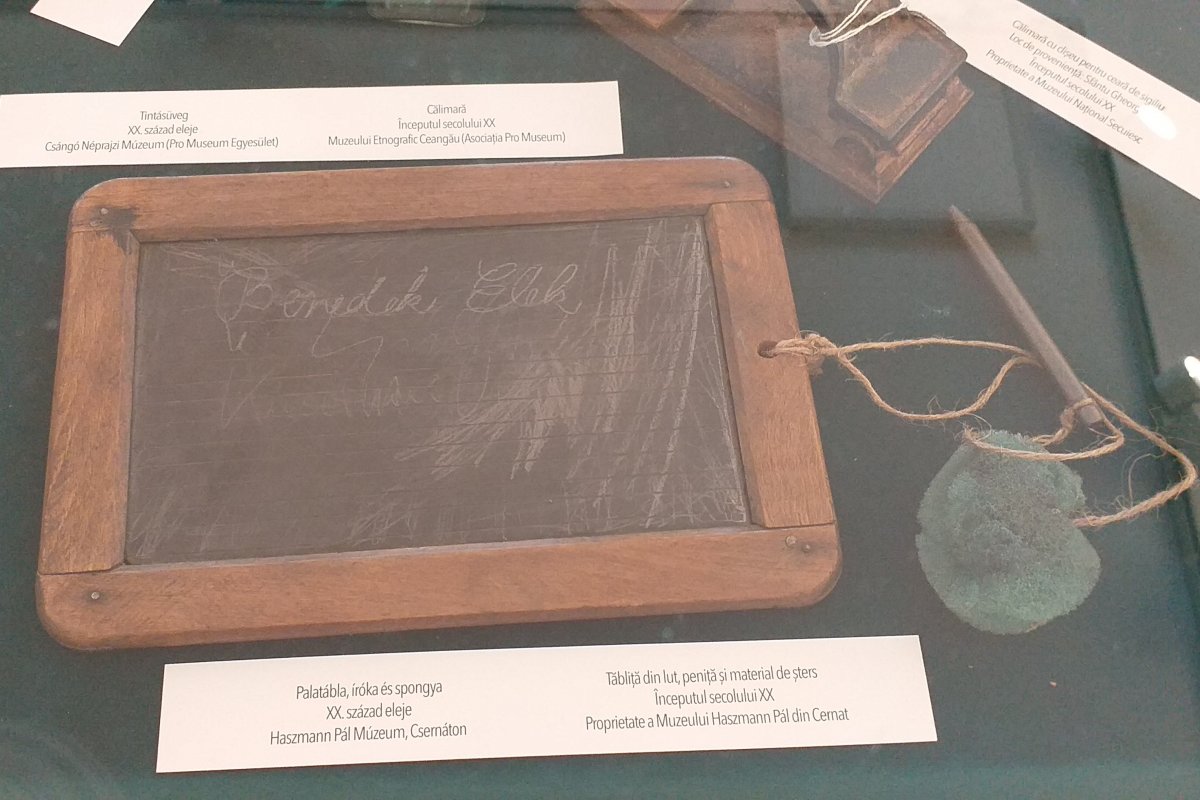 Călimară cu dișeu pentru ceară de sigiliu
Loc de proveniență: Sfântu Gheorg
Începutul secolului XX
Proprietate a Muzeului Național Secuiesc
Tintásüveg
XX. század eleje
Csángó Néprajzi Múzeum (Pro Museum Egyesület)
Călimară
Începutul secolului XX
Muzeului Etnografic Ceangău (Asociația Pro Museum)
Benedek Elek
Palatábla, íróka és spongya
XX. század eleje
Haszmann Pál Múzeum, Csernáton
Tăbliță din lut, peniță și material de șters
Începutul secolului XX
Proprietate a Muzeului Haszmann Pál din Cernat